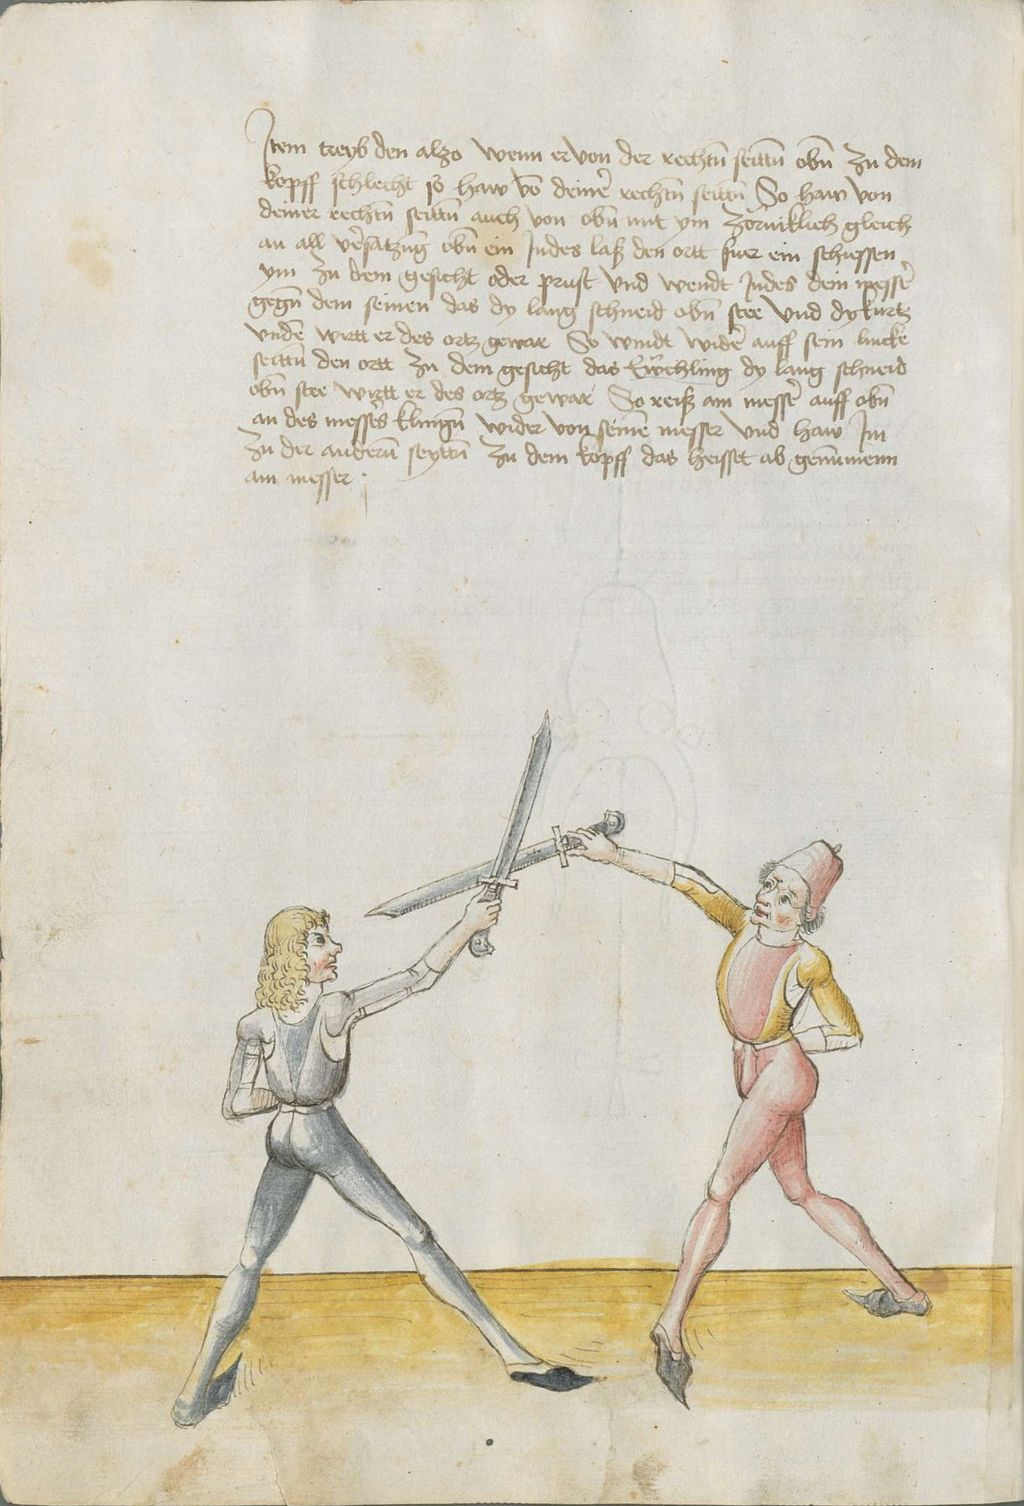 Item treyb den alzo wenn er von der rechtn̄ seittn̄ obn̄ zu dem
kopff schlecht so haw vō deiner̄ rechtn̄ seittn̄ So haw von
deiner rechtn̄ seittn̄ auch von obn̄ mit ym zorniklich gleich
an all ver̄satzūg obn̄ ein Indes laß den ortt fuer ein schiessen
ym zu dem gesicht oder prust vnd wendt Indes dein messer̄
gegn̄ dem seinen das dy lang schneid obn̄ stee vnd dy kurtz
vnden̄ wirtt er des ortz gewar So windt wider̄ auff sein lincke
seittn̄ den ortt zu dem gesicht das dy lang schneid
obn̄ stee wirtt er des ortz gewar So reiß am messer̄ auff obn̄
an des messes klingn̄ wider von seinem̄ messer vnd haw Im
zu der anderen̄ seyttn̄ zu dem kopff das heisset ab genūmenn
am messer